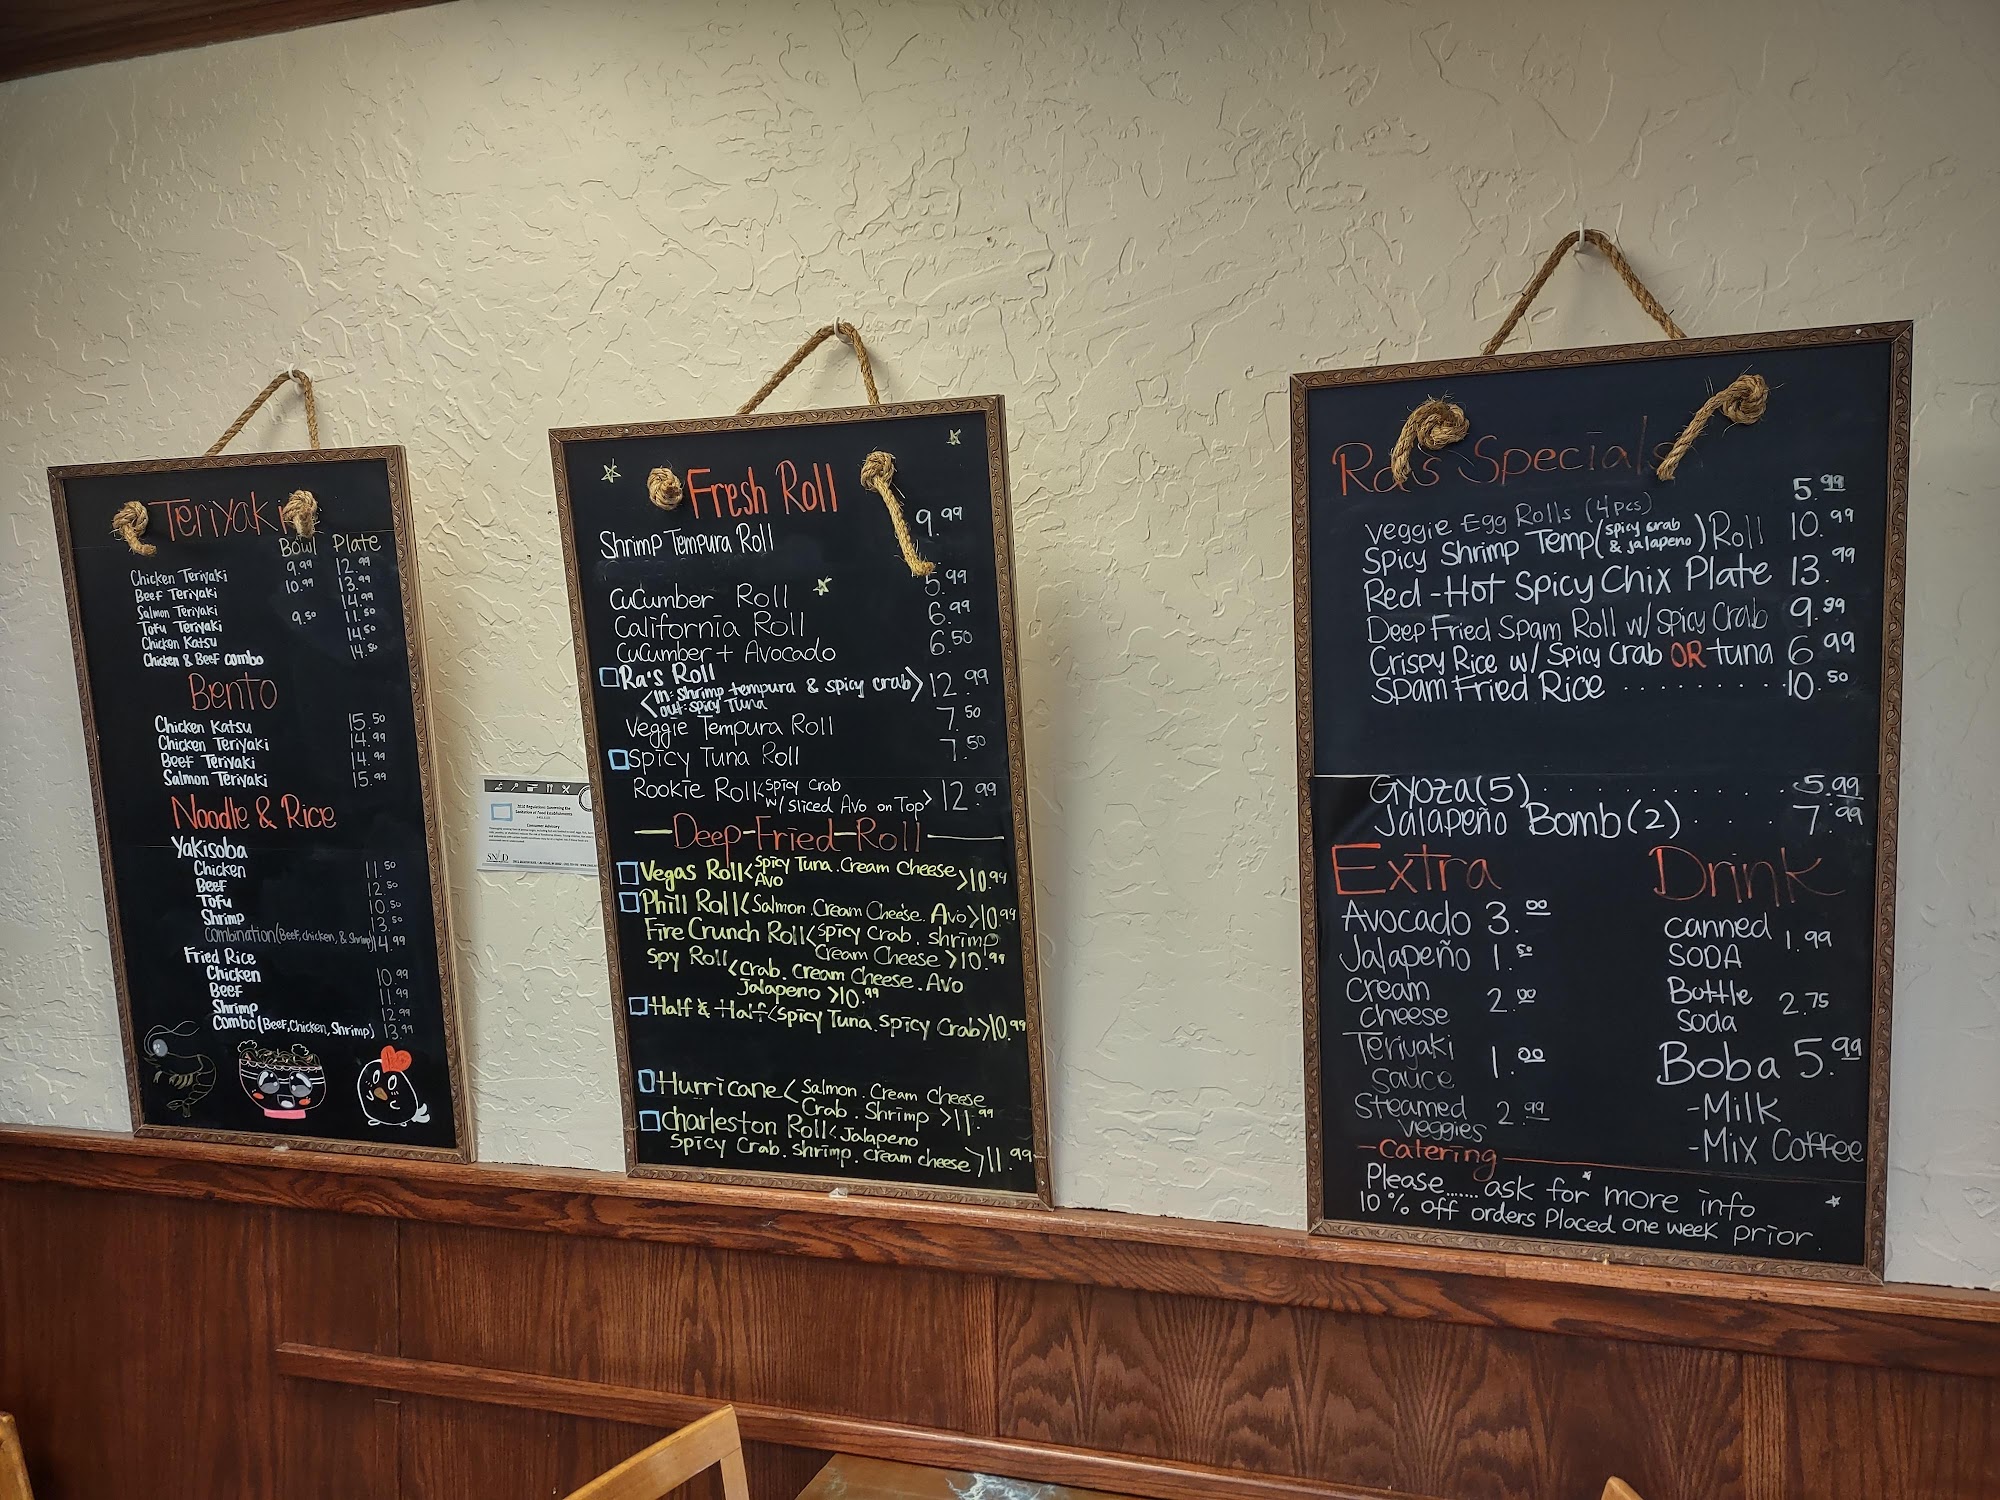 Teriyaki
Bowl Plate
Chicken Teriyaki 9.99 12.99
Beef Teriyaki 10.99 13.99
Salmon Teriyaki 14.99
Tofu Teriyaki 9.50 11.50
Chicken Katsu 14.50
Chicken & Beef combo 14.50
Bento
Chicken Katsu 15.50
Chicken Teriyaki 14.99
Beef Teriyaki 14.99
Salmon Teriyaki 15.99
Noodle & Rice
Yakisoba
Chicken 11.50
Beef 12.50
Tofu 10.50
Shrimp 13.50
Combination (Beef, chicken, & Shrimp) 14.99
Fried Rice
Chicken 10.99
Beef 11.99
Shrimp 12.99
Combo (Beef, Chicken, Shrimp) 13.99
Consumer Advisory
SNHD
Fresh Roll
Shrimp Tempura Roll 9.99
Cucumber Roll 5.99
California Roll 6.99
Cucumber + Avocado 6.50
Ra's Roll
<in: Shrimp tempura & spicy crab> 12.99
out: spicy Tuna
Veggie Tempura Roll 7.50
Spicy Tuna Roll 7.50
Rookie Roll <Spicy Crab
w/ Sliced Avo on Top> 12.99
Deep-Fried-Roll
Vegas Roll <Spicy Tuna. Cream Cheese
Avo >10.99
Phill Roll <Salmon. Cream Cheese. Avo >10.99
Fire Crunch Roll <Spicy Crab. shrimp
Cream Cheese >10.99
Spy Roll <Crab. Cream Cheese. Avo
Jalapeno >10.99
Half & Half <Spicy Tuna. Spicy Crab >10.99
Hurricane <Salmon. Cream Cheese
Crab. Shrimp >11.99
Charleston Roll <Jalapeno
Spicy Crab. Shrimp. Cream cheese >11.99
Ra's Specials
Veggie Egg Rolls (4 pcs) 5.99
Spicy Shrimp Temp (spicy crab & jalapeno) Roll 10.99
Red-Hot Spicy Chix Plate 13.99
Deep Fried Spam Roll w/ Spicy Crab 9.99
Crispy Rice w/ Spicy Crab OR tuna 6.99
Spam Fried Rice ........ 10.50
Gyoza (5) ........ 5.99
Jalapeño Bomb (2) .... 7.99
Extra
Avocado 3.00
Jalapeño 1.50
Cream
Cheese 2.00
Teriyaki
Sauce 1.00
Steamed
Veggies 2.99
Drink
Canned
SODA 1.99
Bottle
Soda 2.75
Boba 5.99
-Milk
-Mix Coffee
-Catering
Please....... ask for more info
10% off orders Placed one week prior.